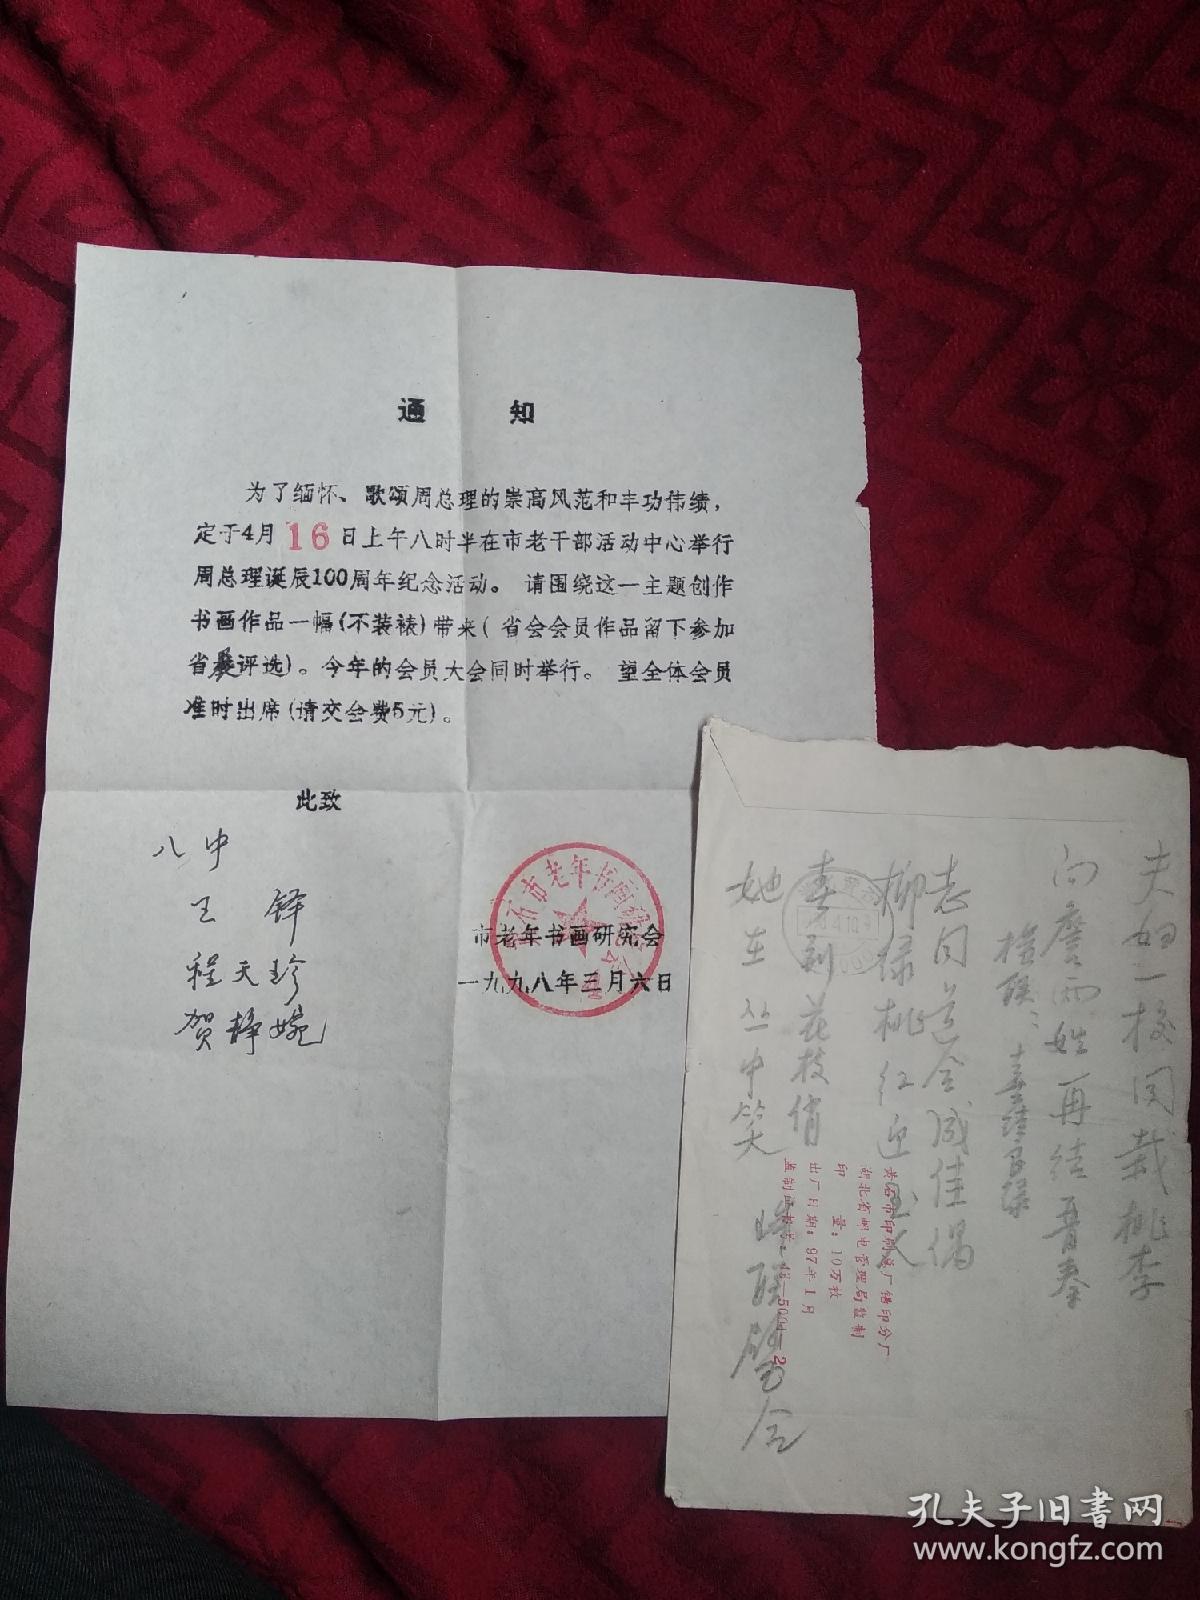 通 知
为了缅怀、歌颂周总理的崇高风范和丰功伟绩，
定于4月16日上午八时半在市老干部活动中心举行
周总理诞辰100周年纪念活动。请围绕这一主题创作
书画作品一幅(不装裱)带来(省会会员作品留下参加
省展评选)。今年的会员大会同时举行。望全体会员
准时出席(请交会费5元)。
此致
八中
王 铎
程天珍
贺静婉
市老年书画研究会
一九九八年三月六日
夫妇一校同栽桃李
向詹两姓再结晋秦
横联：喜结良缘
志同道合成佳偶
柳绿桃红迎玉人
春到花枝俏
她在丛中笑
珠联璧合
黄石市印刷总厂信印分厂
湖北省邮电管理局监制
印 量：10万枚
出厂日期：97年1月
孔夫子旧书网
www.kongfz.com